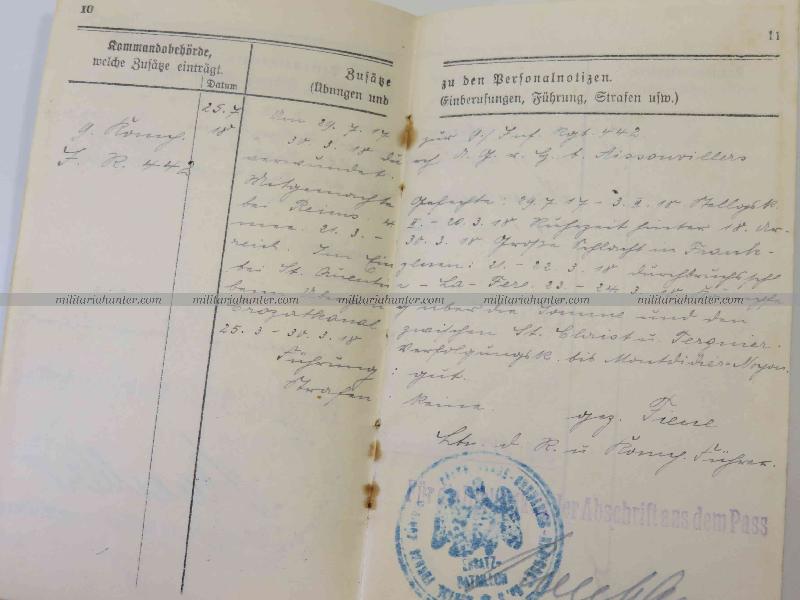 10
Kommandobehörde,
welche Zusätze einträgt.
Datum
Zusätze
(Übungen und
25. 7.
18
9. Komp.
I. R. 442
Am 29. 7. 17
30. 3. 18 du
verwundet.
Mitgemachte
bei Reims. 4
mee. 21. 3. –
reich. Im Ein
bei St. Quentin
beim
Crozatkanal
25. 3 – 30. 3. 18
Führung
Strafen
11
zu den Personalnotizen.
Einberufungen, Führung, Strafen usw.)
zur 9./ Inf. Rgt. 442
rch A. G. v. H. b.
Gefechte: 29. 7. 17 – 3. II. 18 Stellgsk.
II. – 20. 3. 18 Ruhezeit hinter 18. Ar-
30. 3. 18 Große Schlacht in Frank-
21. – 22. 3. 18 Durchbruchschl
– La – Fere. 23. – 24. 3. 18
g über die Somme und den
zwischen St. Christ u. Tergnier.
Verfolgungsk. bis Montdidier-Noyon.
: gut.
: keine.
gez.
Ltn. d. R. u. Komp. Führer.
der Abschrift aus dem Pass
ERSATZ-
BATAILLON
militariahunter.com militariahunter.com militariahunter.com militariahunter.com militariahunter.com